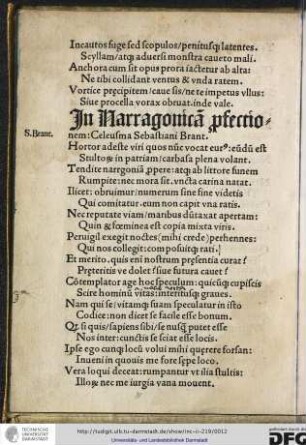 Incautos fuge sed scopulos/penitusq; latentes.
Scyllam/atq; aduersi monstra caueto mali.
Anchora cum sit opus prora iactetur ab alta:
Ne tibi collidant ventus & vnda ratem.
Vortice precipitem/caue sis/ne te impetus vllus:
Siue procella vorax obruat. inde vale.
In Narragonicā pfectio-
S. Brant.
nem: Celeusma Sebastiani Brant.
Hortor adeste viri quos nūc vocat eurꝰ: eūdū est
Stultoꝝ in patriam/carbasa plena volant.
Tendite narregoniā ppere: atq; ab littore funem
Rumpite: nec mora sit. vncta carina natat.
Ilicet: obruimur/numerum sine fine videtis
Qui comitatur. eum non capit vna ratis.
Nec reputate viam/maribus dūtaxat apertam:
Quin & fœminea est copia mixta viris.
Peruigil exegit noctes (mihi crede) perhennes:
Qui nos collegit: composuitq; rati.
Et merito. quis eni nostrum presentia curat?
Preteritis ve dolet? siue futura cauet?
Cōtemplator age hoc speculum: quicūq; cupiscis
Scire hominū vitas: interitusq; graues.
Nam qui se/vitamq; suam speculatur in isto
Codice: non dicet se facile esse bonum.
Qꝫ si quis/sapiens sibi/se nusq̄; putet esse
Nos inter: cunctis se sciat esse locis.
Ipse ego cunq; locū volui mihi querere forsan:
Inueni in quouis me fore sepe loco.
Vera loqui deceat: rumpantur vt ilia stultis:
Illoꝝ nec me iurgia vana mouent.
TECHNISCHE
UNIVERSITÄT
DARMSTADT
http://tudigit.ulb.tu-darmstadt.de/show/inc-ii-219/0012
Universitäts- und Landesbibliothek Darmstadt